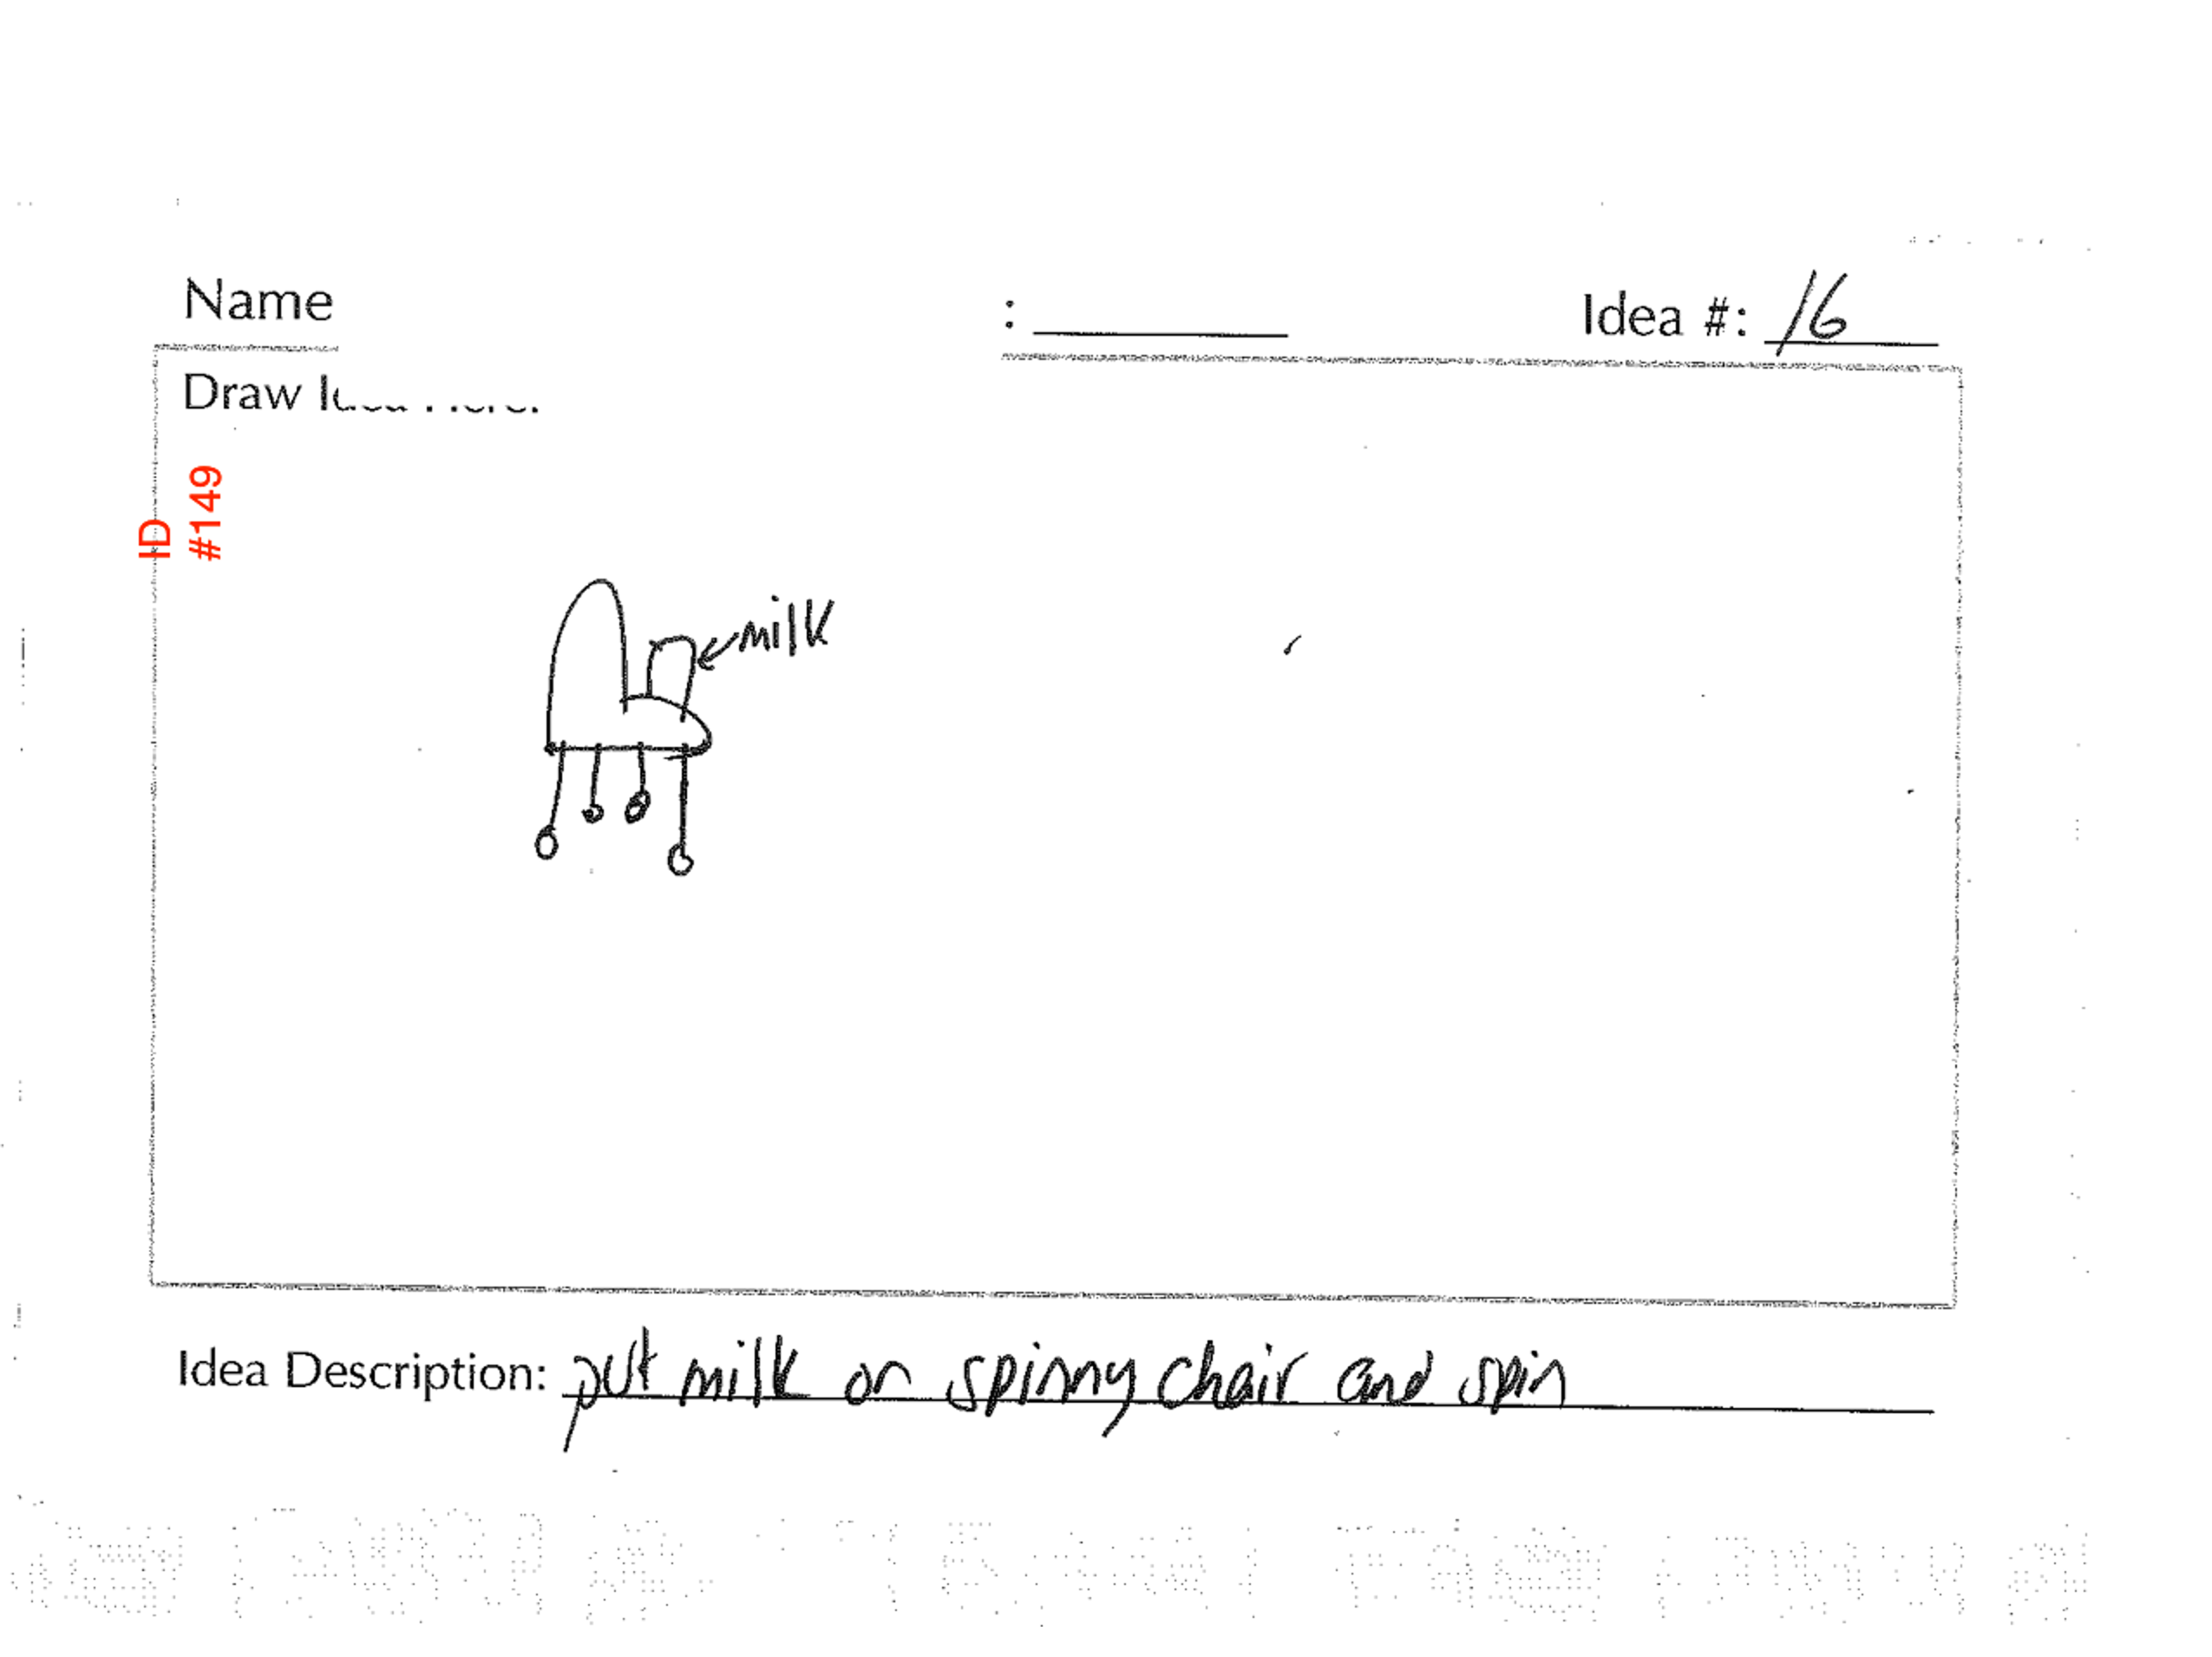 Name : Idea #: 16
Draw Idea Here:
ID
#149
milk
Idea Description: put milk on spinny chair and spin